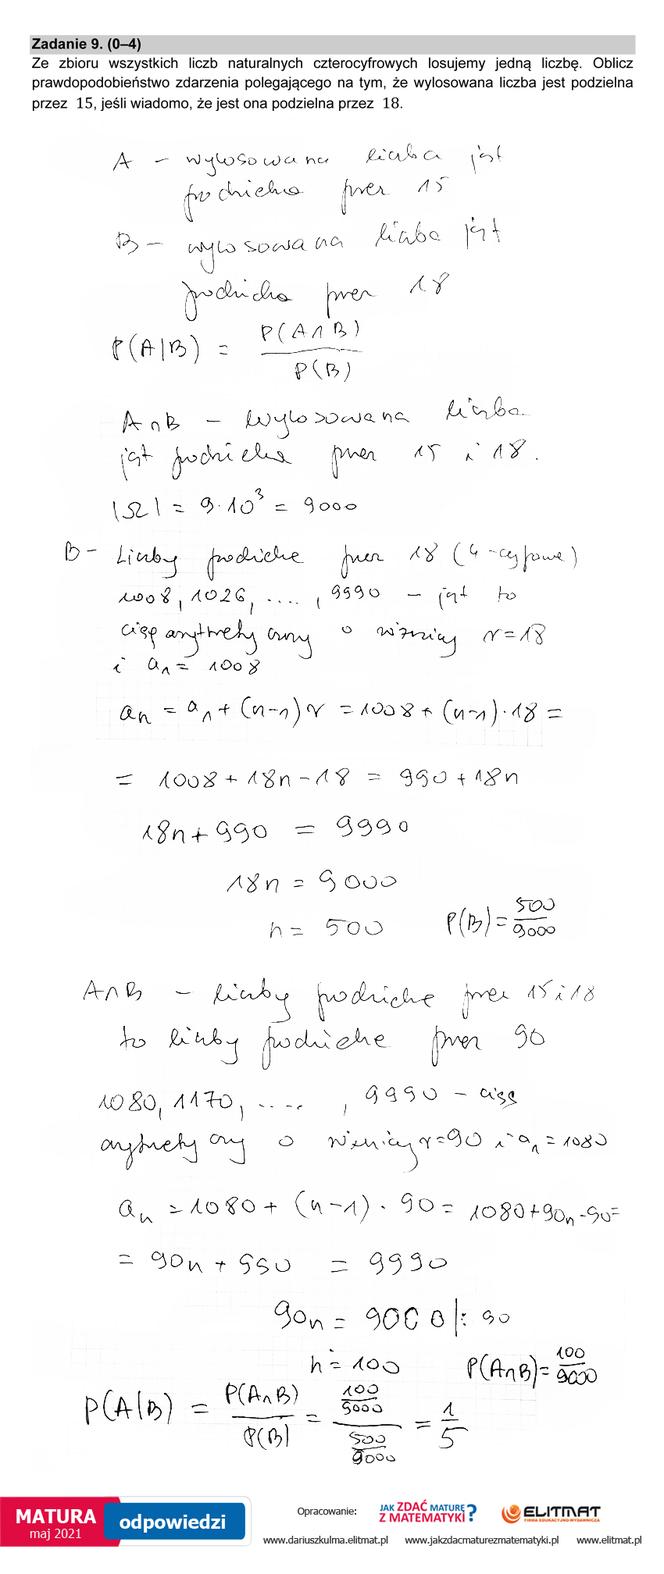 Zadanie 9. (0–4)
Ze zbioru wszystkich liczb naturalnych czterocyfrowych losujemy jedną liczbę. Oblicz
prawdopodobieństwo zdarzenia polegającego na tym, że wylosowana liczba jest podzielna
przez 15, jeśli wiadomo, że jest ona podzielna przez 18.
A – wylosowana liczba jest
podzielna przez 15
B – wylosowana liczba jest
podzielna przez 18
P(A|B) = P(A∩B) / P(B)
A∩B – wylosowana liczba
jest podzielna przez 15 i 18.
|Ω| = 9·10³ = 9000
B – Liczby podzielne przez 18 (4-cyfrowe)
1008, 1026, ...., 9990 – jest to
ciąg arytmetyczny o różnicy r=18
i a₁ = 1008
aₙ = a₁ + (n-1)r = 1008 + (n-1)·18 =
= 1008 + 18n - 18 = 990 + 18n
18n + 990 = 9990
18n = 9000
n = 500 P(B) = 500/9000
A∩B – liczby podzielne przez 15 i 18
to liczby podzielne przez 90
1080, 1170, ....., 9990 – ciąg
arytmetyczny o różnicy r=90 i a₁=1080
aₙ = 1080 + (n-1)·90 = 1080+90n-90=
= 90n + 990 = 9990
90n = 9000 |: 90
n = 100 P(A∩B) = 100/9000
P(A|B) = P(A∩B)/P(B) = (100/9000)/(500/9000) = 1/5
MATURA
maj 2021
odpowiedzi
Opracowanie:
JAK ZDAĆ MATURĘ
Z MATEMATYKI?
ELITMAT
FIRMA EDUKACYJNO-WYDAWNICZA
www.dariuszkulma.elitmat.pl www.jakzdacmaturezmatematyki.pl www.elitmat.pl